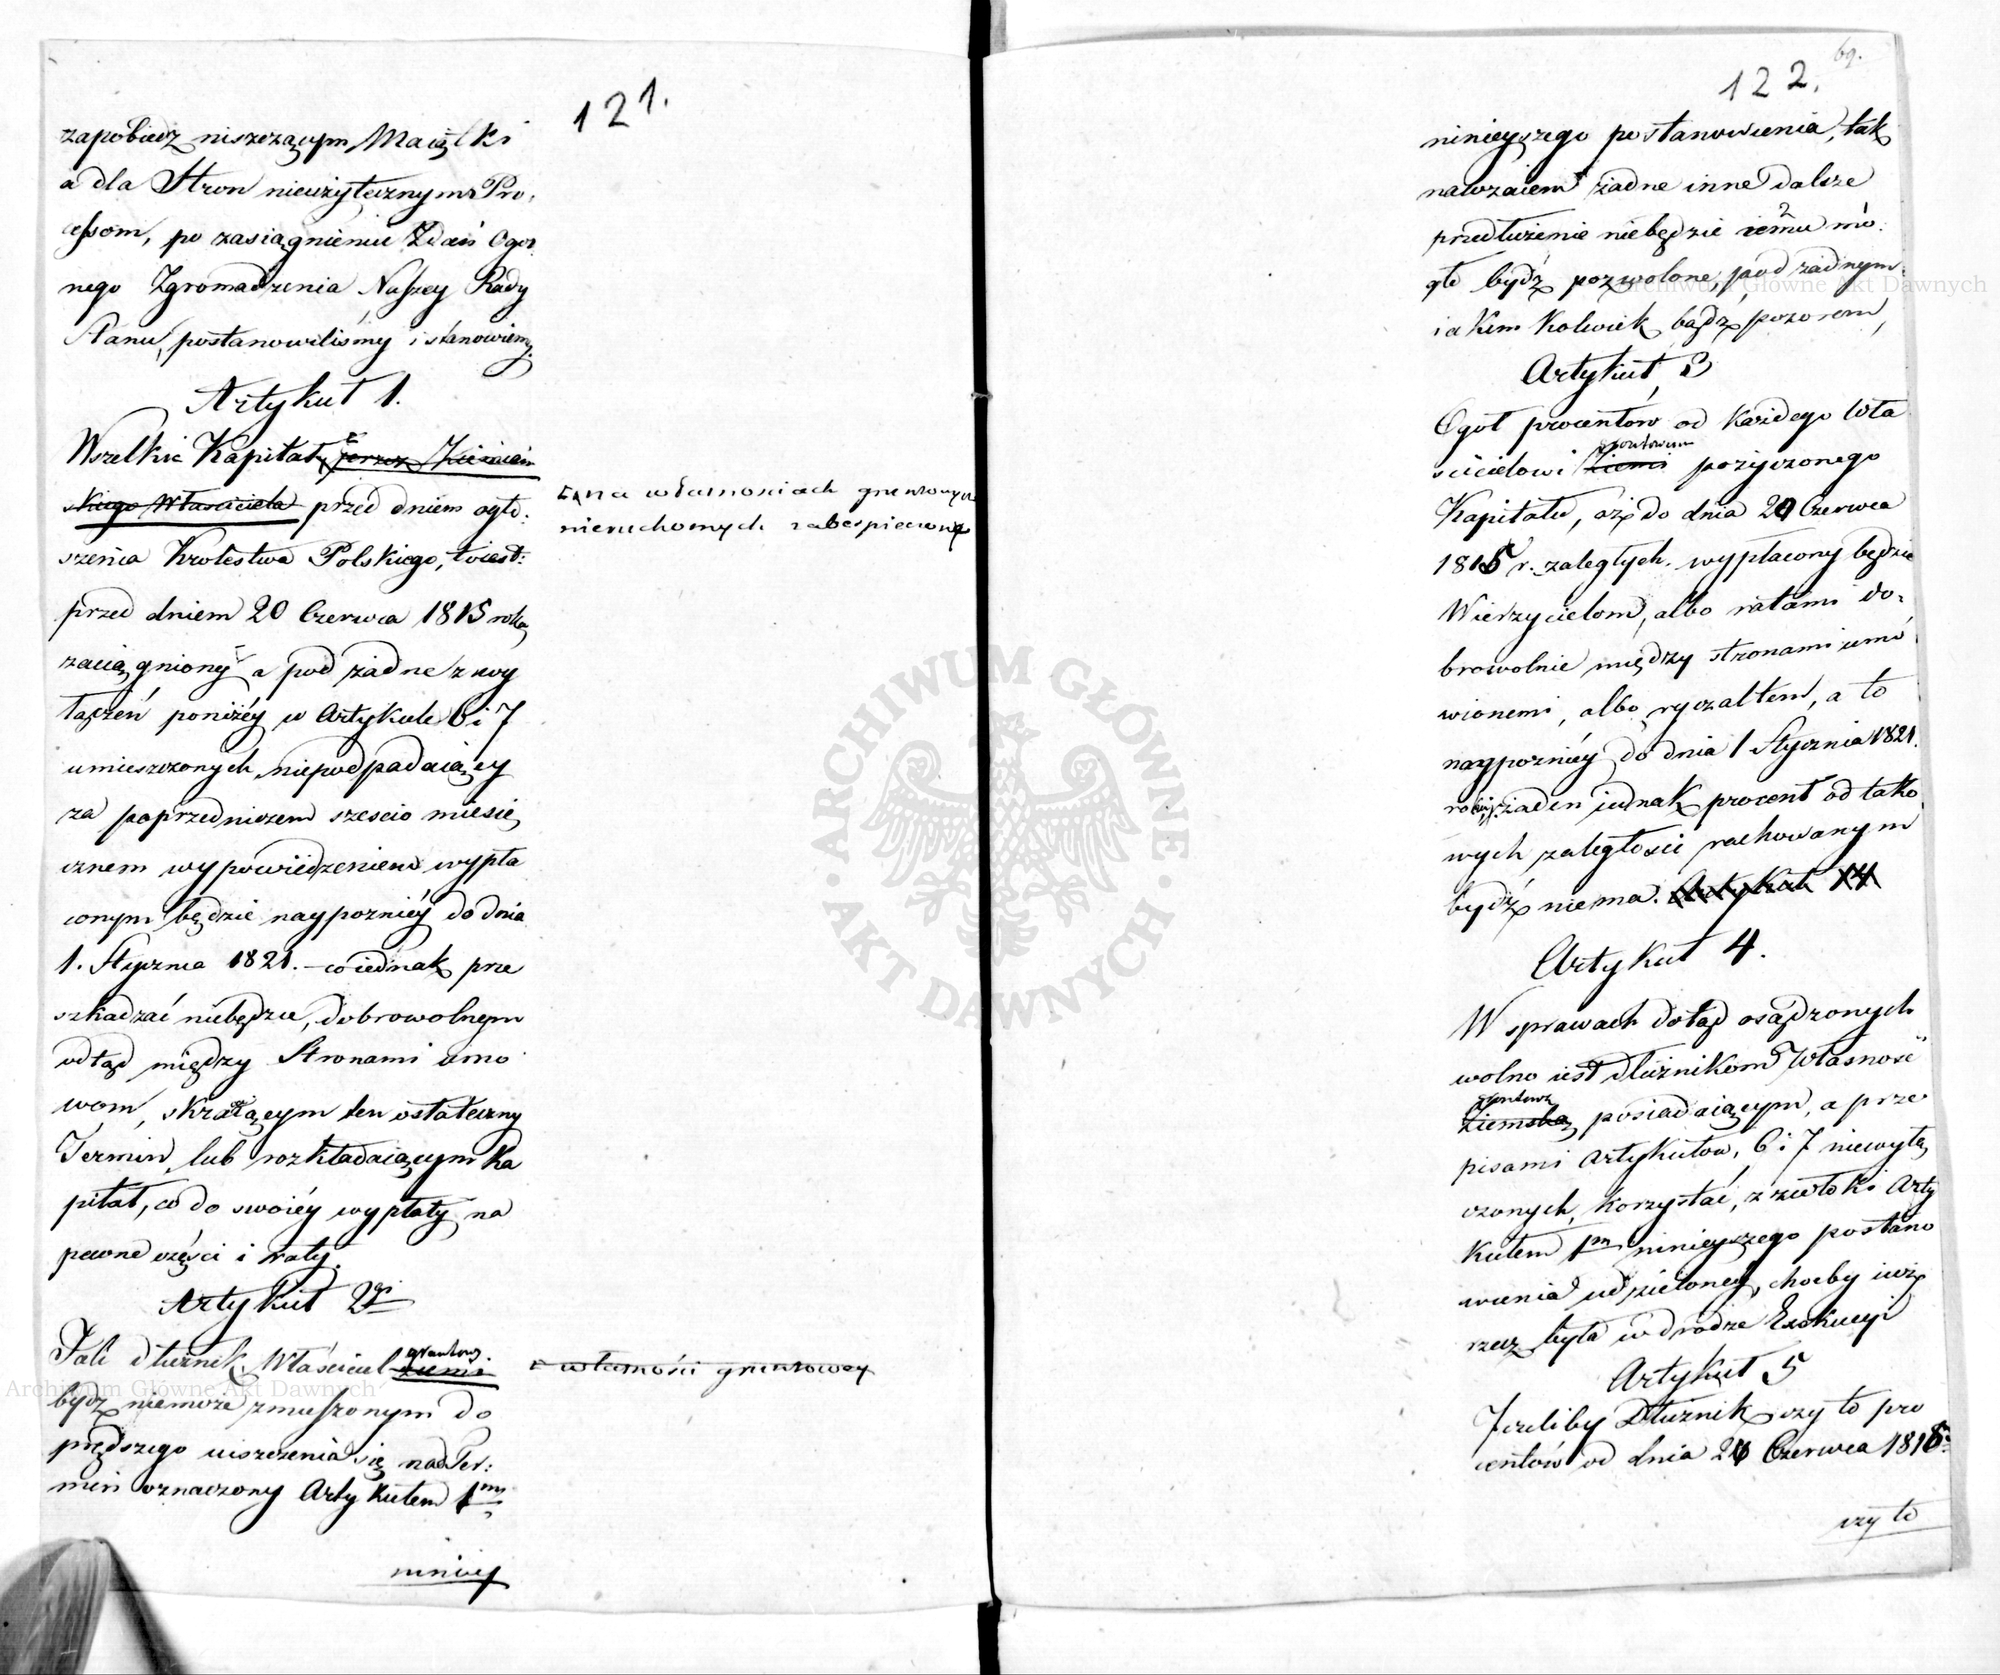 121.
zapobiedz niszczącym Maiątki
a dla Stron nieużytecznym Pro,
cessom, po zasiągnieniu Zdań Ogol
nego Zgromadzenia Naszey Rady
Stanu, postanowiliśmy i stanowiemy.
Artykuł 1.
Wszelkie Kapitały przez Ziemiań
skiego Właściciela przed dniem ogło:
na własnosciach gruntowych
nieruchomych zabespieczony
szenia Krolestwa Polskiego, to iest:
przed dniem 20 Czerwca 1815 roku
zaciągniony a pod żadne z wy
łączeń poniżéy w Artykule 6 i 7
umieszczonych, niepodpadaiący
za poprzedniczem szescio miesię
cznem wypowiedzeniem wypła
conym będzie naypozniéy do dnia
1. Stycznia 1821. – co iednak prze
szkadzać niebędzie, dobrowolnym
odtąd między Stronami umo
wom, skracaiącym ten ostateczny
Termin, lub rozkładaiącym Ka
pitał, co do swoiéy wypłaty na
pewne części i raty.
Artykuł 2gi
Jak dłużnik Właściciel ziemi
gruntowy
własności gruntowey
bydz niemoże zmuszonym do
prędszego uiszczenia się nad Ter:
min oznaczony Artykułem 1ym
niniey
122.
69.
ninieyszego postanowienia, tak
nawzaiem żadne inne dalsze
przedłużenie niebędzie iemu mo:
gło bydź pozwolone, pod żadnym
iakim kolwiek bądź pozorem,
Artykuł 3
Ogół procentów od każdego Wła
scicielowi ziemi pożyczonego
gruntowemu
Kapitału, aż do dnia 20 Czerwca
1815 r. zaległych, wypłacony będzie
Wierzycielom, albo ratami do-
browolnie między stronami umó
wionemi, albo ryczałtem, a to
naypozniéy do dnia 1 Stycznia 1821.
żaden iednak procent od tako
wych zaległości rachowanym
bydź niema. Artykuł
Artykuł 4.
W sprawach dotąd osądzonych
wolno iest dłużnikom Własność
gruntową
Ziemską posiadaiącym, a prze
pisami Artykułow, 6 i 7 niewyłą
czonych, korzystać, z zwłoki Arty
kułem 1m ninieyszego postano
wienia udzieloney, choćby iuż
rzecz była w drodze Exekucyi
Artykuł 5
Jeżeliby Dłużnik czy to pro
centów od dnia Czerwca
czy to